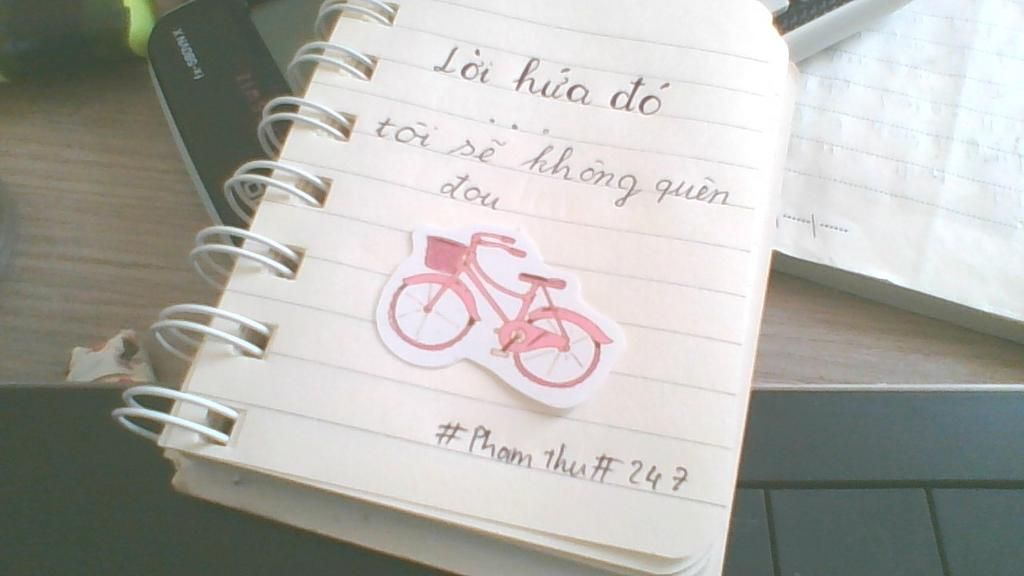 Lời hứa đó
...
tôi sẽ không quên
đou
#Pham thu# 247